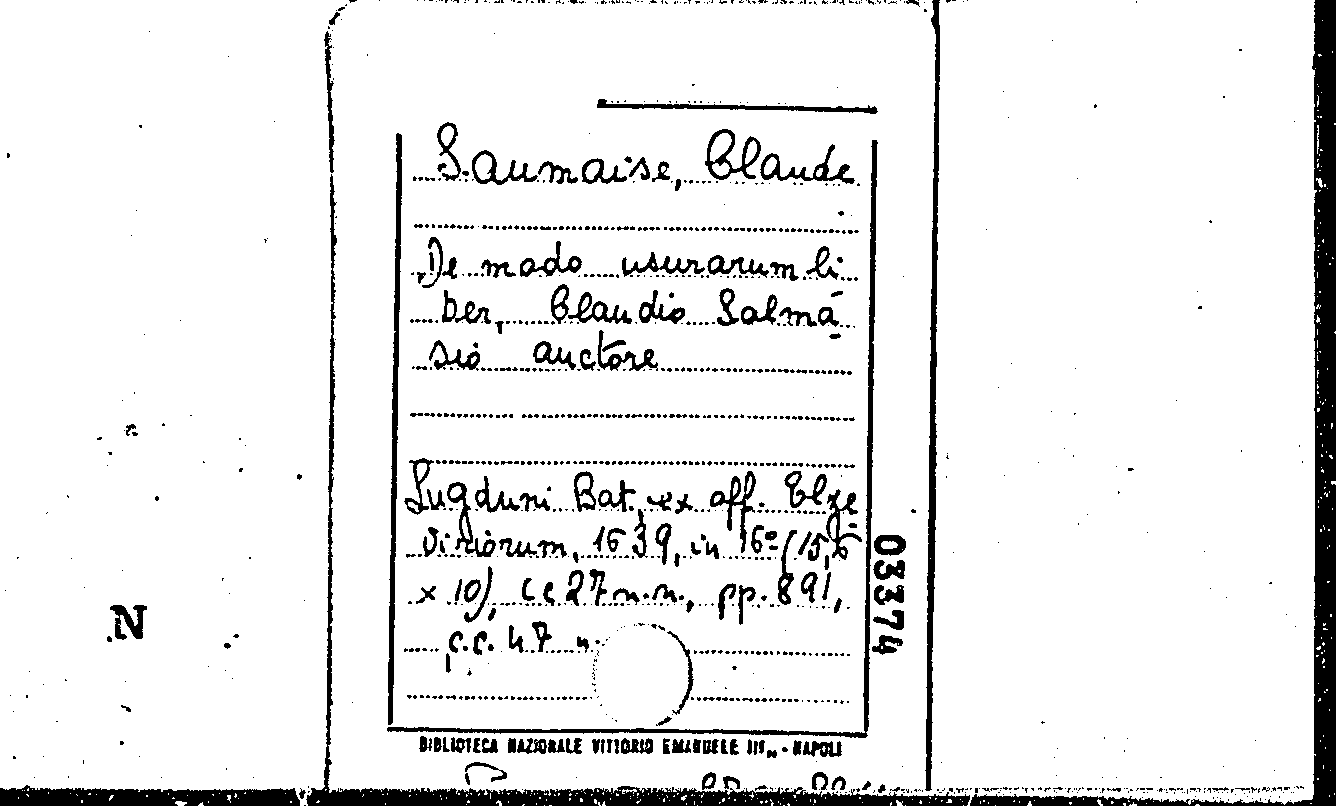 Saumaise, Claude
De modo usurarum li
ber, Claudio Salma
sio auctore
Lugduni Bat., ex off. Elze
viriorum, 1639, in 16º (15,5
x 10), cc 27 n.n., pp. 891,
c.c. 47 n.
03374
N
BIBLIOTECA NAZIONALE VITTORIO EMANUELE III - NAPOLI